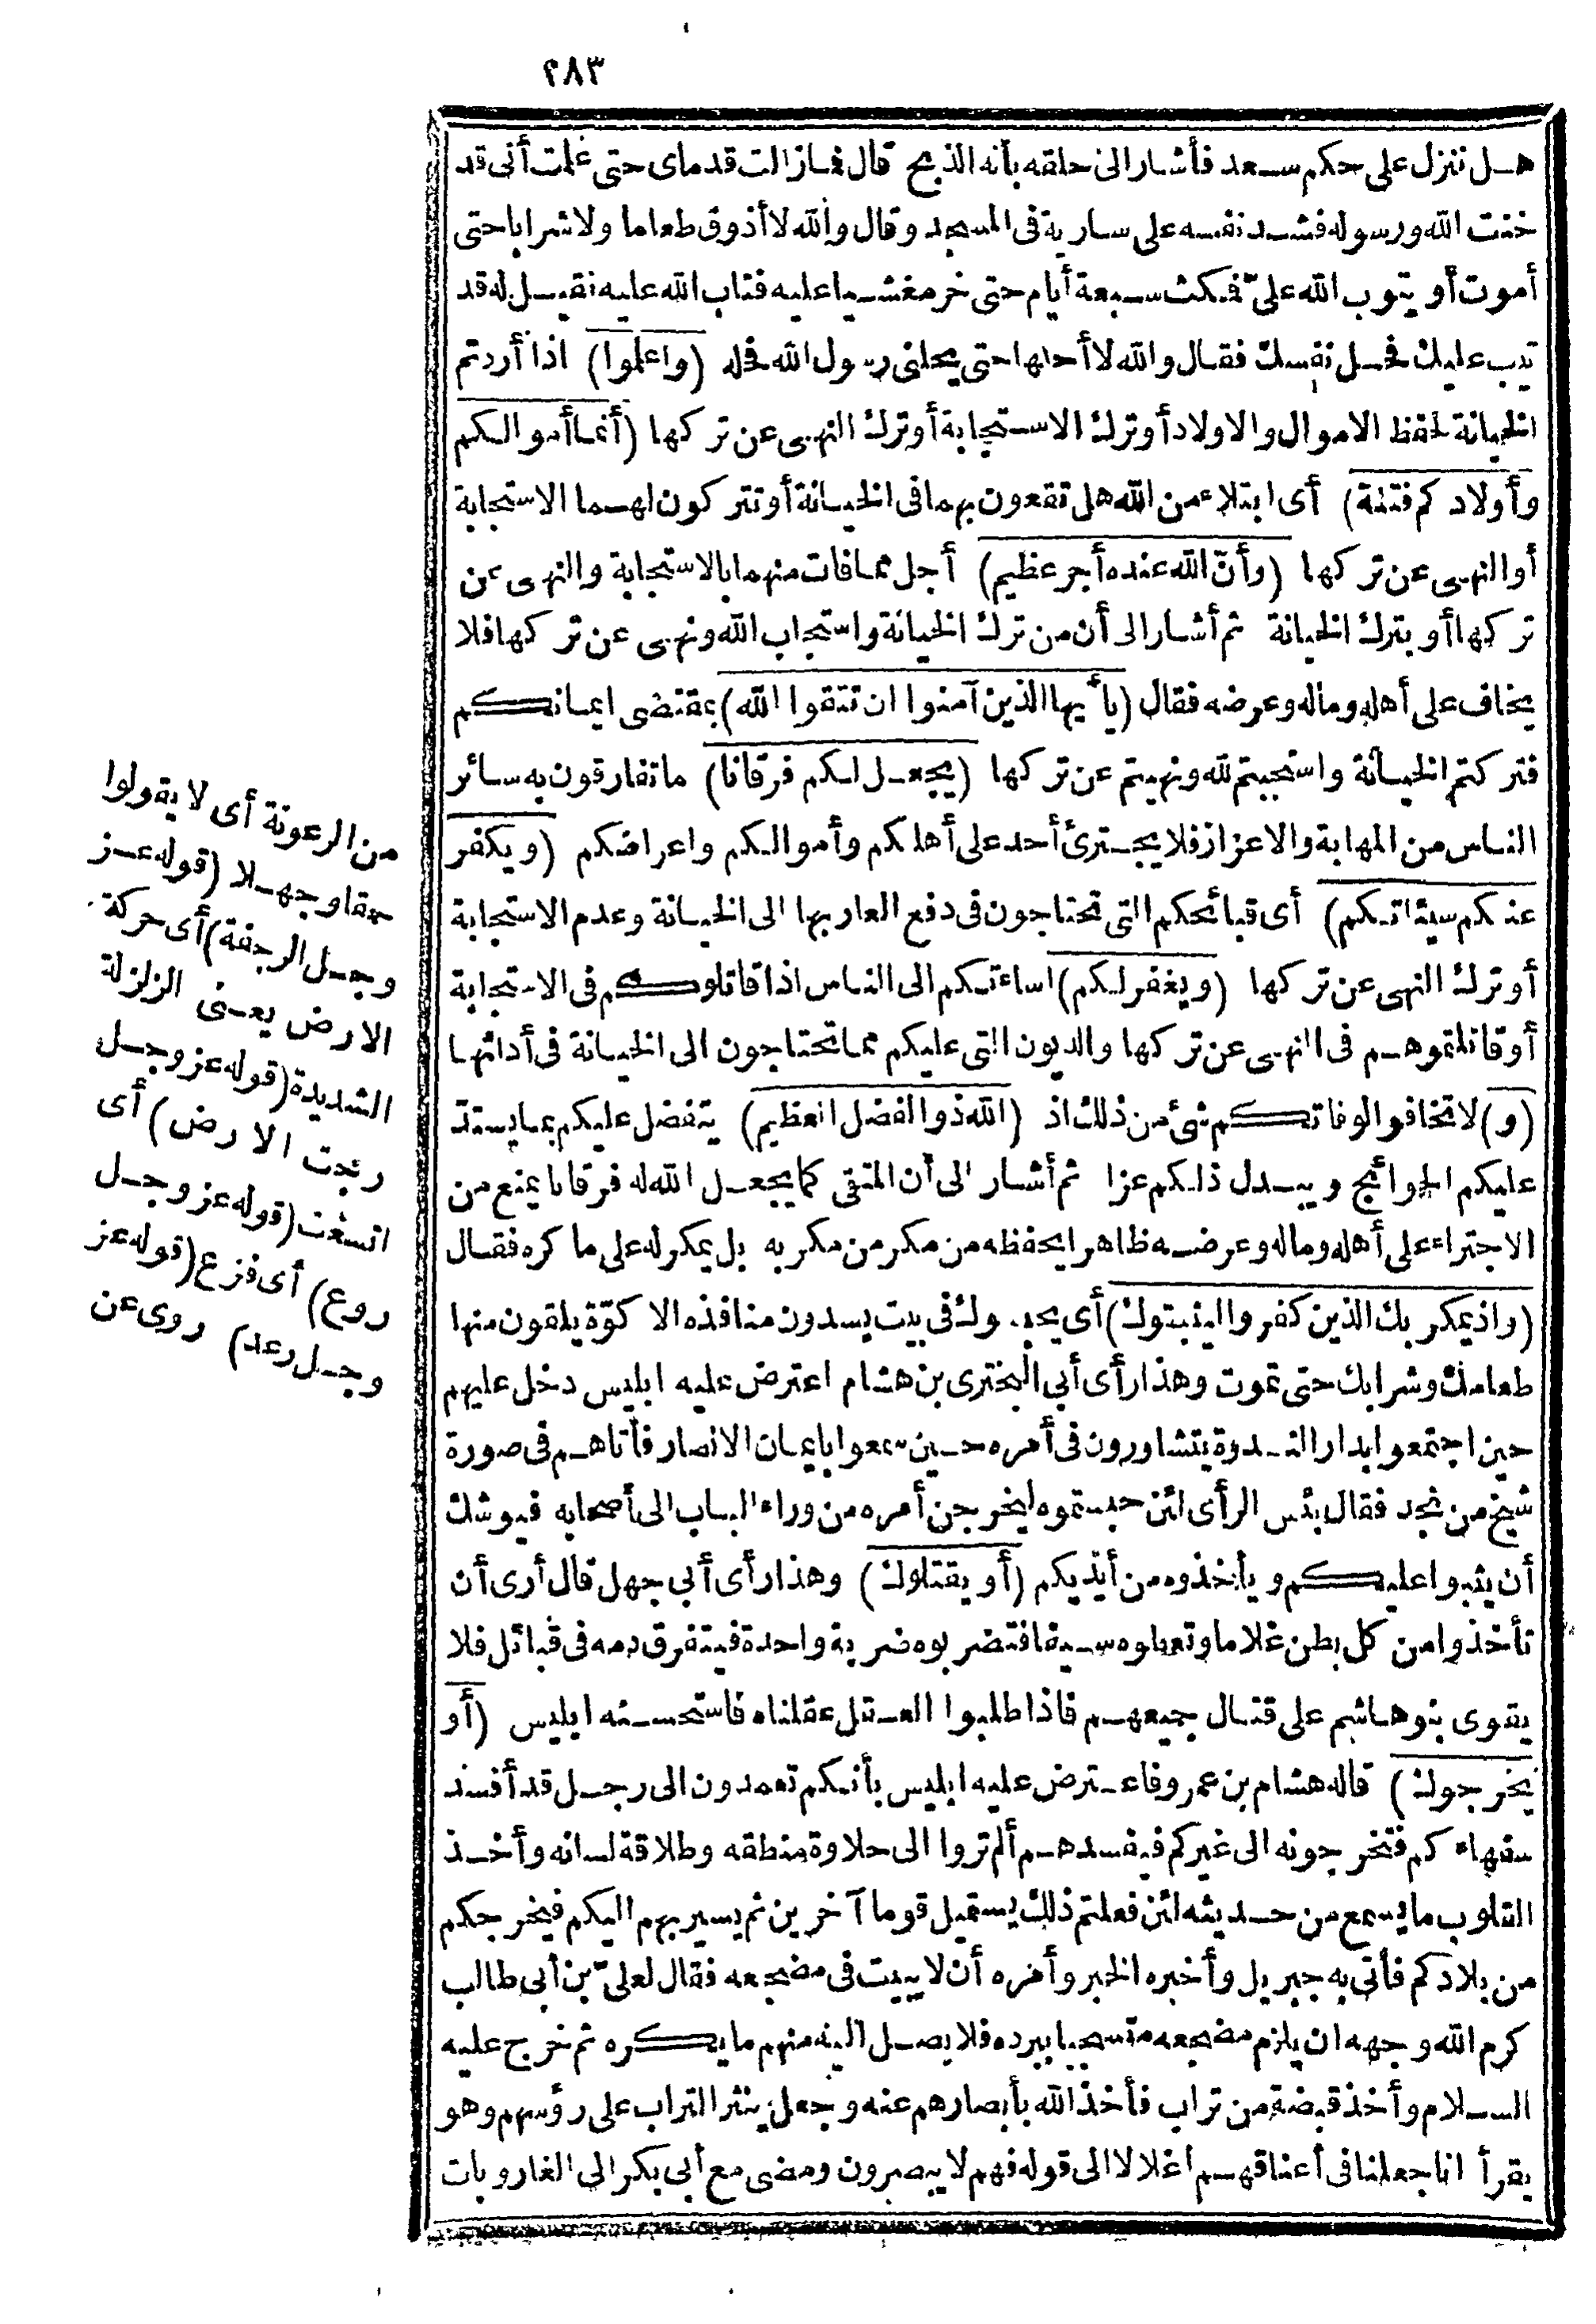 ٢٨٣
هل ننزل على حكم سعد فأشار الى حلقه بأنه الذبح قال فما زالت قدماى حتى علمت أنى قد
خنت الله ورسوله فشد نفسه على سارية فى المسجد وقال والله لا أذوق طعاما ولا شرابا حتى
أموت أو يتوب الله علىّ فمكث سبعة أيام حتى خر مغشيا عليه فتاب الله عليه فقيل له قد
تيب عليك فحل نفسك فقال والله لا أحلها حتى يحلنى رسول الله فحله (واعلموا) اذا أردتم
الخيانة لحفظ الاموال والاولاد أو ترك الاستجابة أو ترك النهى عن تركها (أنما أموالكم
وأولادكم فتنة) أى ابتلاء من الله هل تقعون بهما فى الخيانة أو تتركون لهما الاستجابة
أو النهى عن تركها (وأنّ الله عنده أجر عظيم) أجل مما فات منهما بالاستجابة والنهى عن
تركها أو بترك الخيانة ثم أشار الى أن من ترك الخيانة واستجاب الله ونهى عن تركها فلا
يخاف على أهله وماله وعرضه فقال (يا أيها الذين آمنوا ان تتقوا الله) بمقتضى ايمانكم
فتركتم الخيانة واستجبتم لله ونهيتم عن تركها (يجعل لكم فرقانا) ما تفارقون به سائر
الناس من المهابة والاعزاز فلا يجترئ أحد على أهلكم وأموالكم واعراضكم (ويكفر
عنكم سيئاتكم) أى قبائحكم التى تحتاجون فى دفع العار بها الى الخيانة وعدم الاستجابة
أو ترك النهى عن تركها (ويغفر لكم) اساءتكم الى الناس اذا قاتلوكم فى الاستجابة
أو قاتلتموهم فى النهى عن تركها والديون التى عليكم مما تحتاجون الى الخيانة فى أدائها
(و) لا تخافوا لوفاتكم شئ من ذلك اذ (الله ذو الفضل العظيم) يتفضل عليكم بما يستد
عليكم الحوائج ويبدل ذلكم عزا ثم أشار الى أن المتقى كما يجعل الله له فرقانا يمنع من
الاجتراء على أهله وماله وعرضه ظاهرا يحفظه من مكر من مكر به بل يمكر له على ما كره فقال
(واذ يمكر بك الذين كفروا ليثبتوك) أى يحبسوك فى بيت يسدون منافذه الا كوّة يلقون منها
طعامك وشرابك حتى تموت وهذا رأى أبى البخترى بن هشام اعترض عليه ابليس دخل عليهم
حين اجتمعوا بدار الندوة يتشاورون فى أمره حين سمعوا بايمان الانصار فأتاهم فى صورة
شيخ من نجد فقال بئس الرأى لئن حبستموه ليخرجن أمره من وراء الباب الى أصحابه فيوشك
أن يثبوا عليكم ويأخذوه من أيديكم (أو يقتلوك) وهذا رأى أبى جهل قال أرى أن
تأخذوا من كل بطن غلاما وتعطوه سيفا فتضربوه ضربة واحدة فيتفرق دمه فى قبائل فلا
يقوى بنو هاشم على قتال جميعهم فاذا طلبوا العقل عقلناه فاستحسنه ابليس (أو
يخرجوك) قاله هشام بن عمرو فاعترض عليه ابليس بأنكم تعمدون الى رجل قد أفسد
سفهاءكم فتخرجونه الى غيركم فيفسدهم ألم تروا الى حلاوة منطقه وطلاقة لسانه وأخذ
القلوب ما يسمع من حديثه لئن فعلتم ذلك يستميل قوما آخرين ثم يسير بهم اليكم فيخرجكم
من بلادكم فأتى به جبريل وأخبره الخبر وأمره أن لا يبيت فى مضجعه فقال لعلىّ بن أبى طالب
كرم الله وجهه ان يلزم مضجعه متسجيا ببرده فلا يصل اليه منهم ما يكره ثم خرج عليه
السلام وأخذ قبضة من تراب فأخذ الله بأبصارهم عنه وجعل ينثر التراب على رؤسهم وهو
يقرأ انا جعلنا فى أعناقهم أغلالا الى قوله فهم لا يبصرون ومضى مع أبى بكر الى الغار وبات
من الرعونة أى لا يقولوا
حمقا وجهلا (قوله عز
وجل الرجفة) أى حركة
الارض يعنى الزلزلة
الشديدة (قوله عز وجل
رحبت الارض) أى
اتسعت (قوله عز وجل
روع) أى فزع (قوله عز
وجل رعد) روى عن